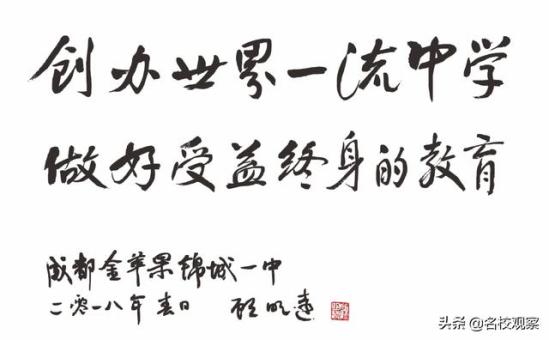 创办世界一流中学
做好受益终身的教育
成都金苹果锦城一中
二零一八年春日 顾明远
头条@名校观察